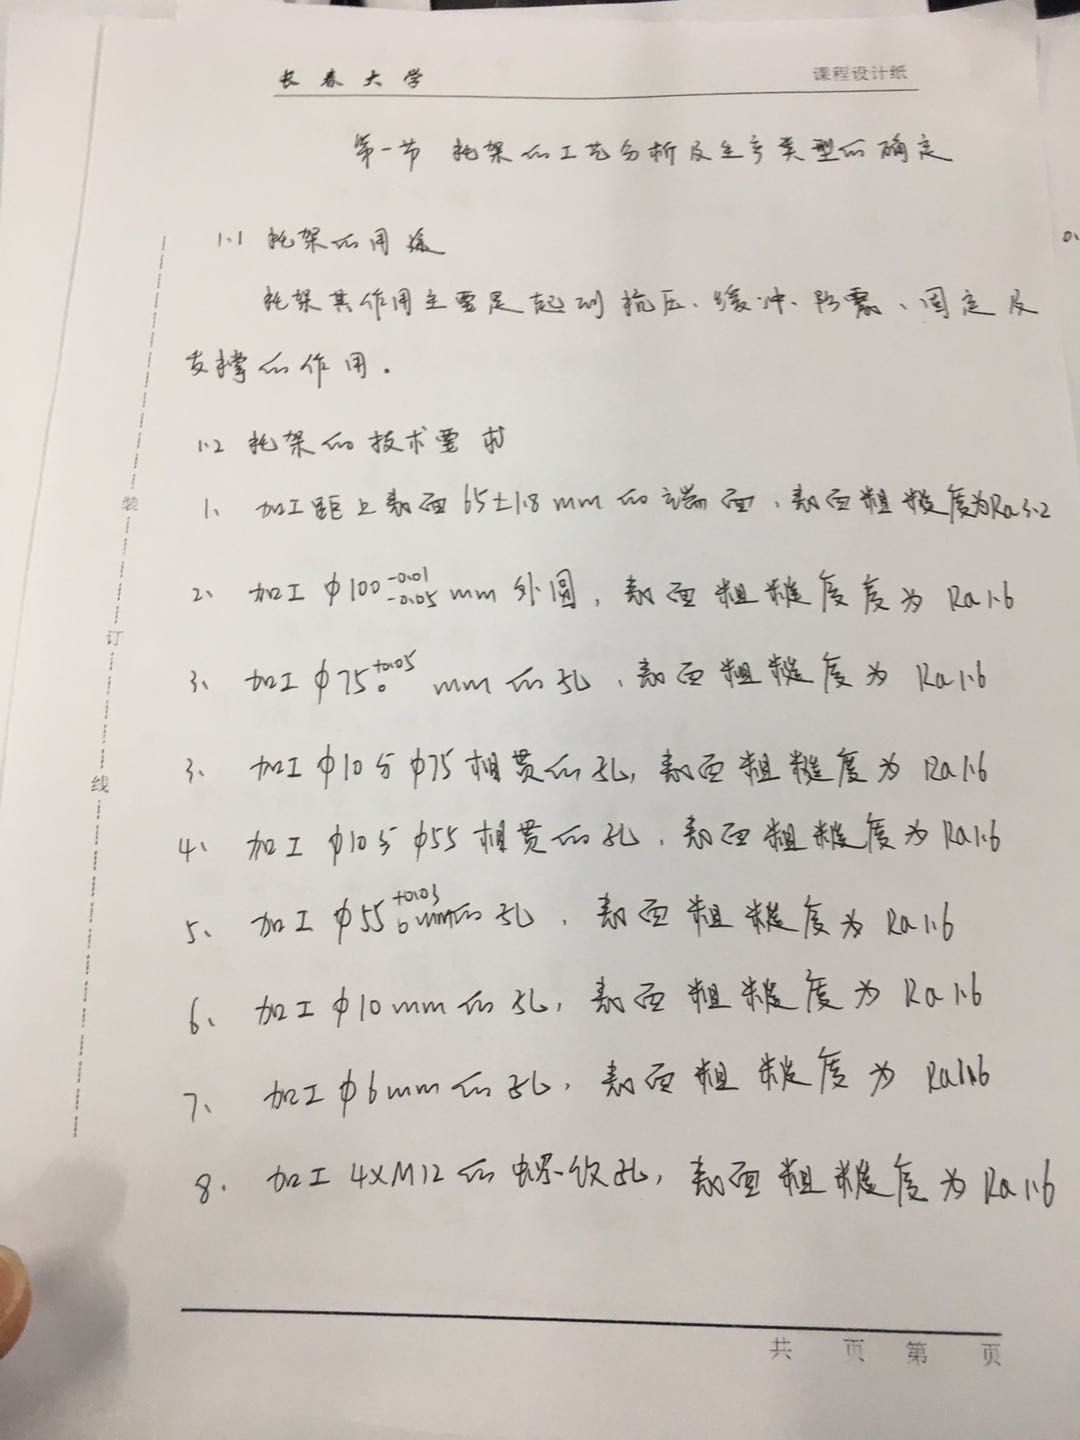 长春大学 课程设计纸
第一节 托架的工艺分析及生产类型的确定
1.1 托架的用途
托架其作用主要是起到抗压、缓冲、防震、固定及
支撑的作用.
1.2 托架的技术要求
1、加工距上表面65±1.8mm的端面,表面粗糙度为Ra3.2
2、加工φ100-0.01-0.05mm外圆,表面粗糙度度为Ra1.6
3、加工φ75+0.05 0 mm的孔,表面粗糙度为Ra1.6
3、加工φ10与φ75相贯的孔,表面粗糙度为Ra1.6
4、加工φ10与φ55相贯的孔,表面粗糙度为Ra1.6
5、加工φ55+0.03 0 mm的孔,表面粗糙度为Ra1.6
6、加工φ10mm的孔,表面粗糙度为Ra1.6
7、加工φ6mm的孔,表面粗糙度为Ra1.6
8.加工4×M12的螺纹孔,表面粗糙度为Ra1.6
装
订
线
共 页 第 页